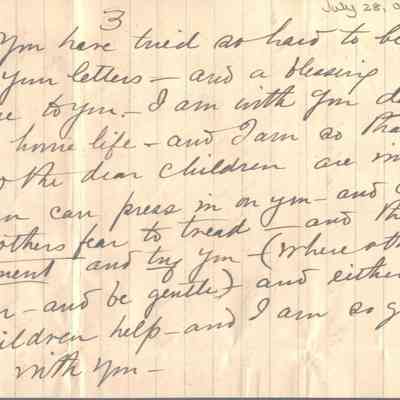 July 28, 0
3
You have tried so hard to be
your letters – and a blessing
to you – I am with you d
home life – and I am so tha
the dear children are in
can press in on you – and
others fear to tread – and th
ment and try you – (where oth
– and be gentle) – and either
ildren help – and I am so g
with you –